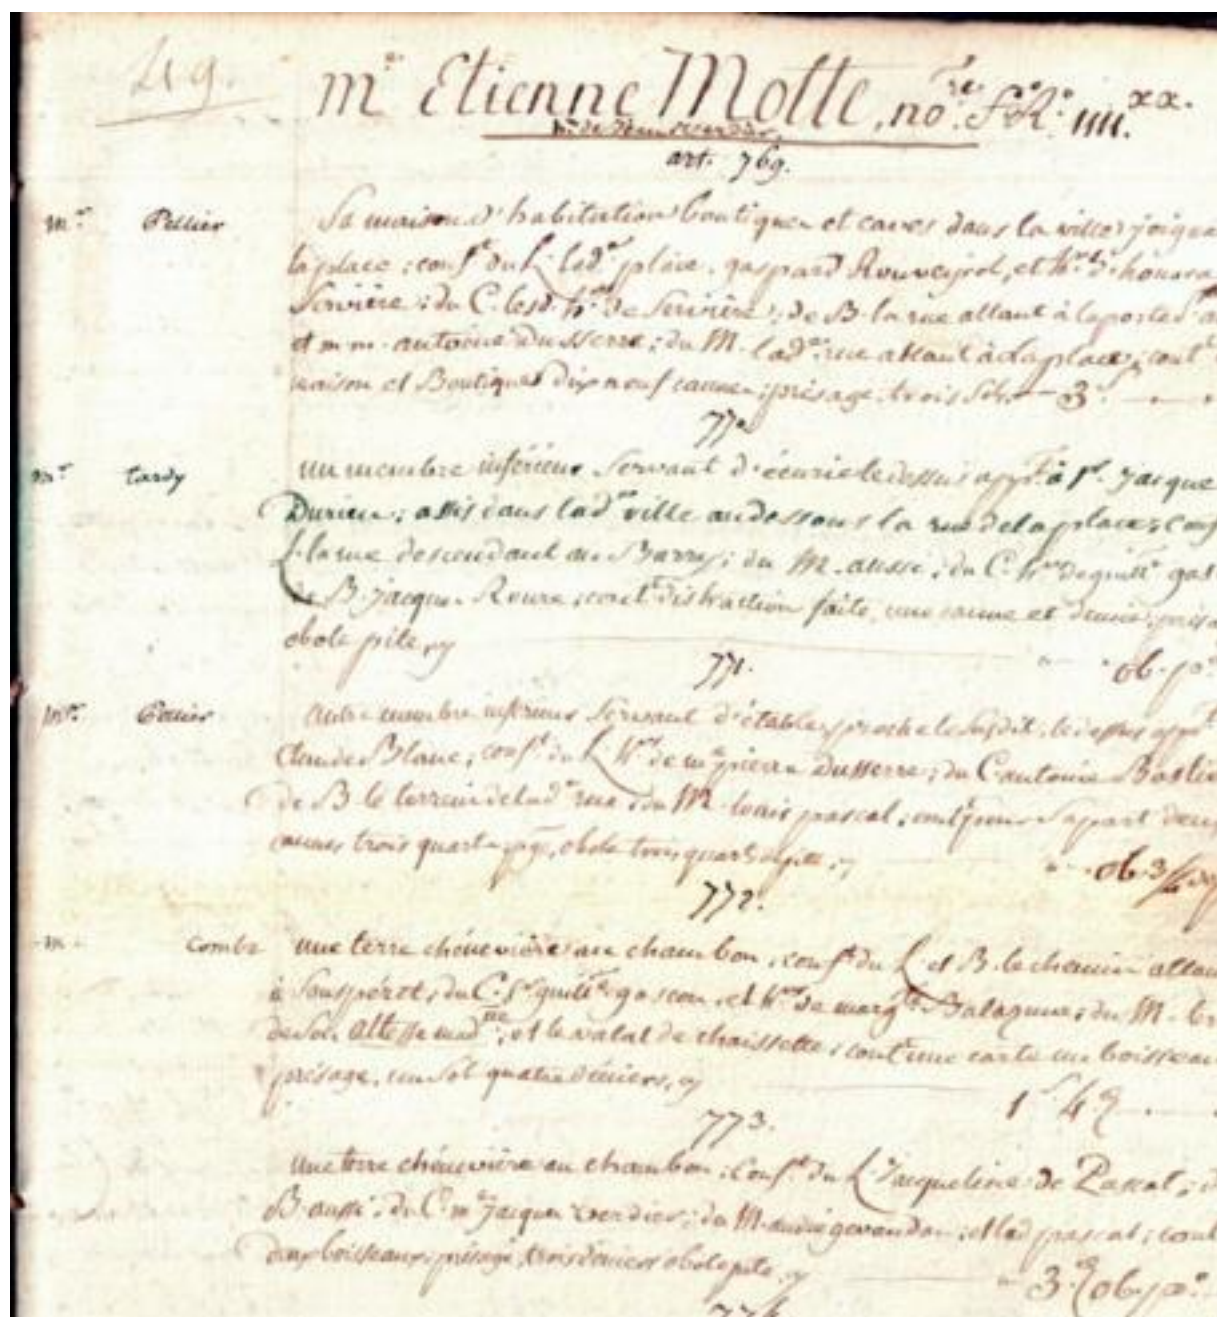 219.
m.e Etienne Motte, no.re f.o R.o IIII.xx.
art. 769.
m.r Pellier Sa maison d'habitation boutiques et caves dans la ville joigna
la place; conf.t du L. lad.e place, gaspard Rouveyrol, et h.rs d'honora
Servière; du C. lesd. h.rs de Servière; de B. la rue allant à la porte d
et m.e antoine Dusserre; du M. lad.e rue allant à la place, cont.t
maison et Boutiques dix neuf cannes; présage trois sols 3.s
770
m.r tardy un membre inférieur servant d'écurie le dessus app.t à s.r Jacque
Durieu; assis dans lad.e ville au dessous la rue de la place; conf
L. la rue descendant au Barry; du M. aussi; du C. h.rs de guill.e gas
de B. jacques Roure; cont.t distraction faite, une canne et demie; présa
obole pite, ob. p.e
771.
m.r Pellier autre membre inférieur servant d'étable, proche le susdit; le dessus app.t
Claude Blanc; conf.t du L. h.rs de m.e pierre Dusserre; du C. antoine Bastid
de B. le terrein de lad.e rue; du M. louis pascal; cont.t pour sa part deux
cannes trois quarts pge, obole trois quarts pite, ob. 3/4
772.
m.r Combe une terre chénevière au chambon, conf.t du L. et B. le chemin allan
à Souspéret, du C. s.r guill.e gascon, et h.rs de marg.te Balazuc; du M. le
de son altesse mad.me, et le valat de chaissette; cont.t une carte un boisseau
présage, un sol quatre déniers, 1.s 4.d
773.
une terre chénevière au chambon; conf.t du L. Jacqueline de Pascal; d
B. aussi; du C. m.e Jacques verdier; du M. andré gevaudan; et lad. pascal; cont
deux boisseaux; présage, trois déniers obole pite. 3.d ob. p.e